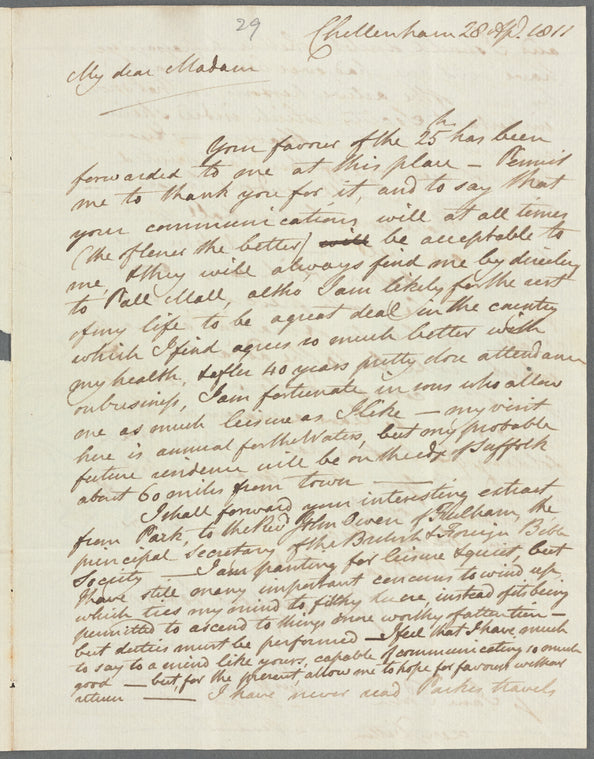 29
Cheltenham 28 Apl. 1811
My dear Madam
Your favour of the 25th has been
forwarded to me at this place — Permit
me to thank you for it, and to say that
your communications will at all times
(the oftener the better) will be acceptable to
me, & they will always find me by directing
to Pall Mall, altho I am likely for the rest
of my life to be a great deal in the country
which I find agrees so much better with
my health, & after 40 years pretty close attendance
on business, I am fortunate in sons who allow
me as much leisure as I like — my visit
here is annual for the Waters, but my probable
future residence will be on the edge of Suffolk
about 60 miles from town —
I shall forward your interesting extract
from Park, to the Revd John Owen of Fulham, the
principal Secretary of the British & Foreign Bible
Society — I am panting for leisure & quiet, but
I have still many important concerns to wind up,
which ties my mind to filthy lucre, instead of its being
permitted to ascend to things more worthy of attention —
but duties must be performed — I feel that I have much
to say to a mind like yours, capable of communicating so much
good — but, for the present, allow me to hope for favours without
return — I have never read Parkes travels